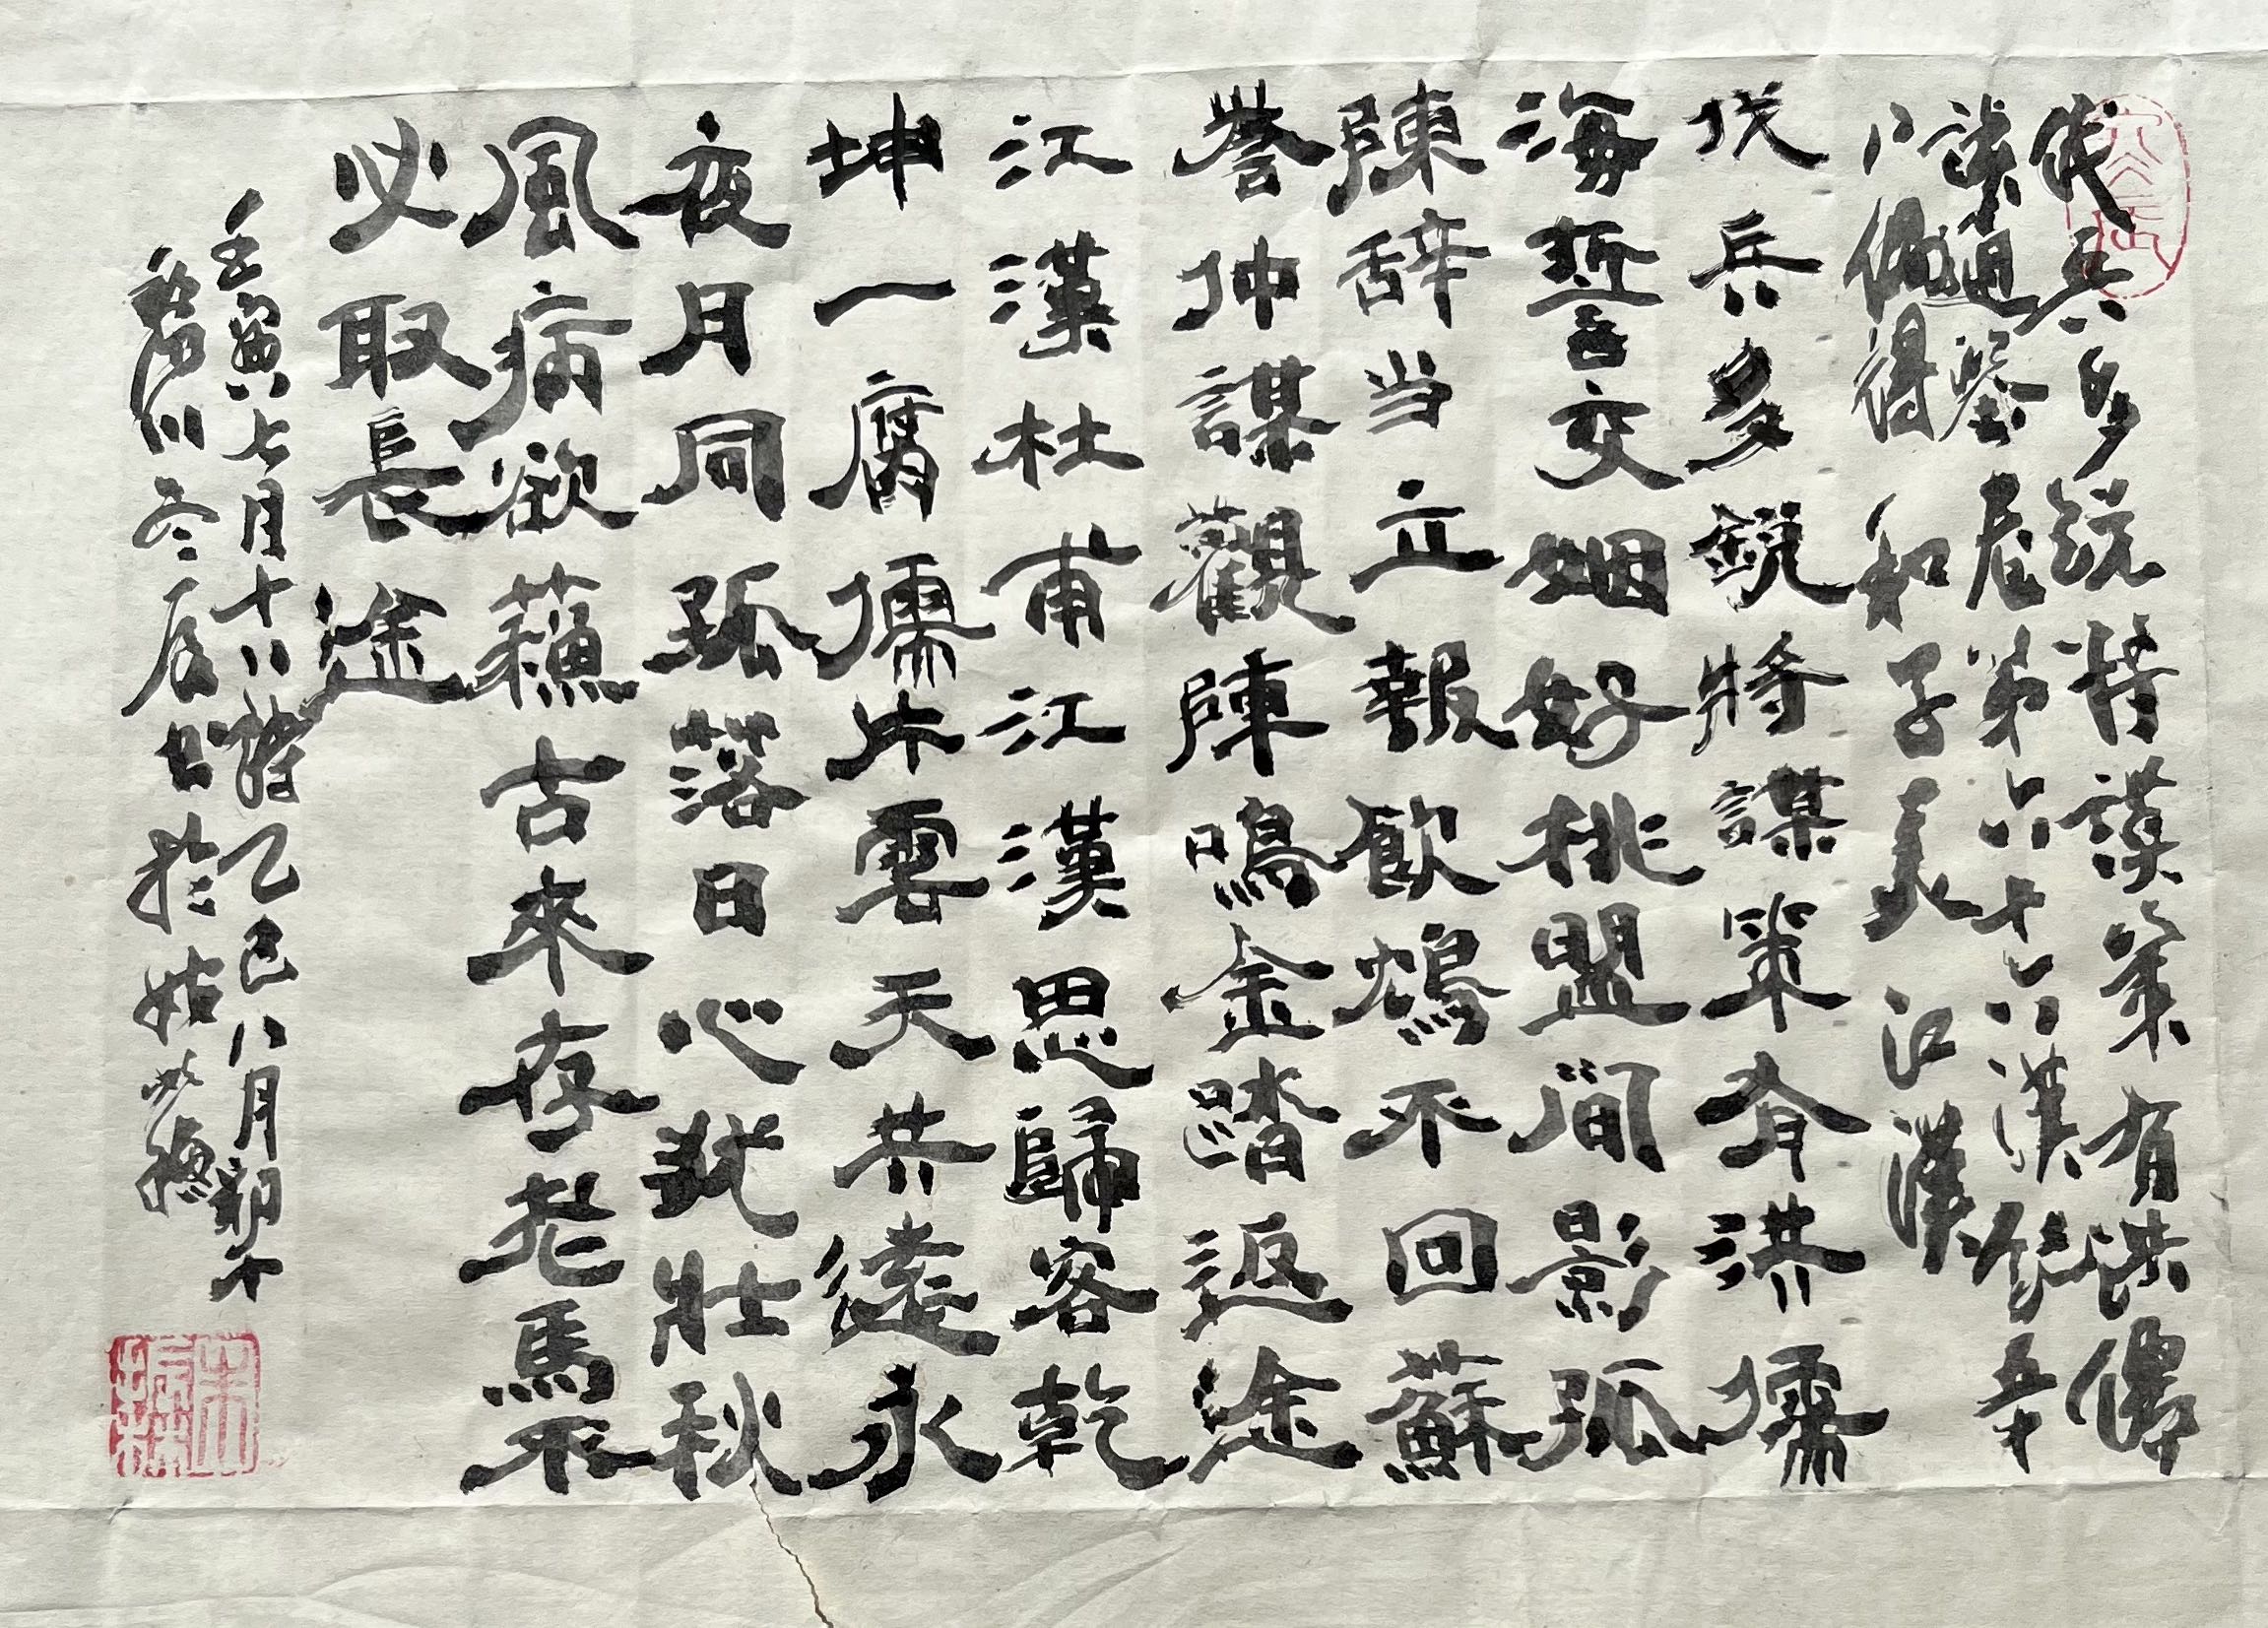 伐兵多鋭特謀策有洪儒
讀通鑒卷第六十六漢紀五十
八偶得和子美江漢
伐兵多鋭將謀策有洪儒
海誓交姻好桃盟間影孤
陳辞当立報飲鴆不回蘇
譽仲謀觀陣鳴金踏返途
江漢杜甫江漢思歸客乾
坤一腐儒片雲天共遠永
夜月同孤落日心猶壯秋
風病欲蘓古來存老馬不
必取長途
壬寅七月十八詩乙巳八月初十
於姑